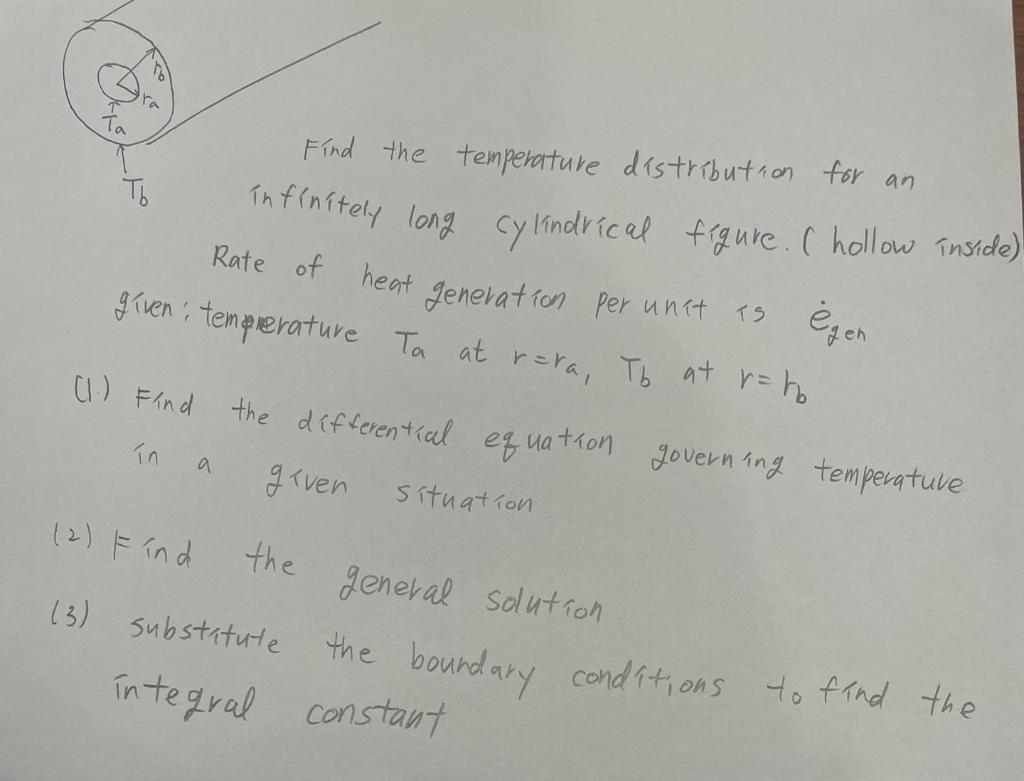 rb
ra
Ta
Tb
Find the temperature distribution for an
infinitely long cylindrical figure. (hollow inside)
Rate of heat generation per unit is ėgen
given: temperature Ta at r=ra, Tb at r=rb
(1.) Find the differential equation governing temperature
in a given situation
(2) Find the general solution
(3) substitute the boundary conditions to find the
integral constant